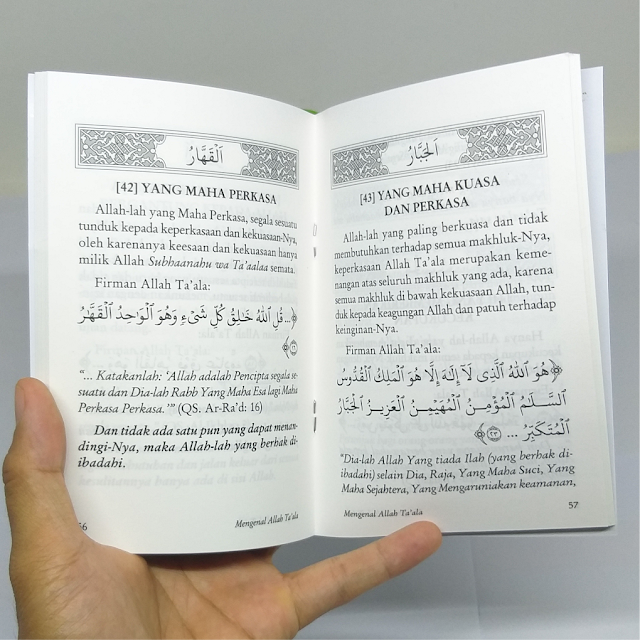 اَلْقَهَّارُ
[42] YANG MAHA PERKASA
Allah-lah yang Maha Perkasa, segala sesuatu
tunduk kepada keperkasaan dan kekuasaan-Nya,
oleh karenanya keesaan dan kekuasaan hanya
milik Allah Subhaanahu wa Ta'aalaa semata.
Firman Allah Ta'ala:
...قُلِ ٱللَّهُ خَـٰلِقُ كُلِّ شَىْءٍ وَهُوَ ٱلْوَٰحِدُ ٱلْقَهَّـٰرُ
﴿١٦﴾
“... Katakanlah: ‘Allah adalah Pencipta segala se-
suatu dan Dia-lah Rabb Yang Maha Esa lagi Maha
Perkasa Perkasa.’” (QS. Ar-Ra'd: 16)
Dan tidak ada satu pun yang dapat menan-
dingi-Nya, maka Allah-lah yang berhak di-
ibadahi.
56
Mengenal Allah Ta'ala
اَلْجَبَّارُ
[43] YANG MAHA KUASA
DAN PERKASA
Allah-lah yang paling berkuasa dan tidak
membutuhkan terhadap semua makhluk-Nya,
keperkasaan Allah Ta'ala merupakan keme-
nangan atas seluruh makhluk yang ada, karena
semua makhluk di bawah kekuasaan Allah, tun-
duk kepada keagungan Allah dan patuh terhadap
keinginan-Nya.
Firman Allah Ta'ala:
﴿هُوَ ٱللَّهُ ٱلَّذِى لَآ إِلَـٰهَ إِلَّا هُوَ ٱلْمَلِكُ ٱلْقُدُّوسُ
ٱلسَّلَـٰمُ ٱلْمُؤْمِنُ ٱلْمُهَيْمِنُ ٱلْعَزِيزُ ٱلْجَبَّارُ
ٱلْمُتَكَبِّرُ ... ﴿٢٣﴾
“Dia-lah Allah Yang tiada Ilah (yang berhak di-
ibadahi) selain Dia, Raja, Yang Maha Suci, Yang
Maha Sejahtera, Yang Mengaruniakan keamanan,
57
Mengenal Allah Ta'ala